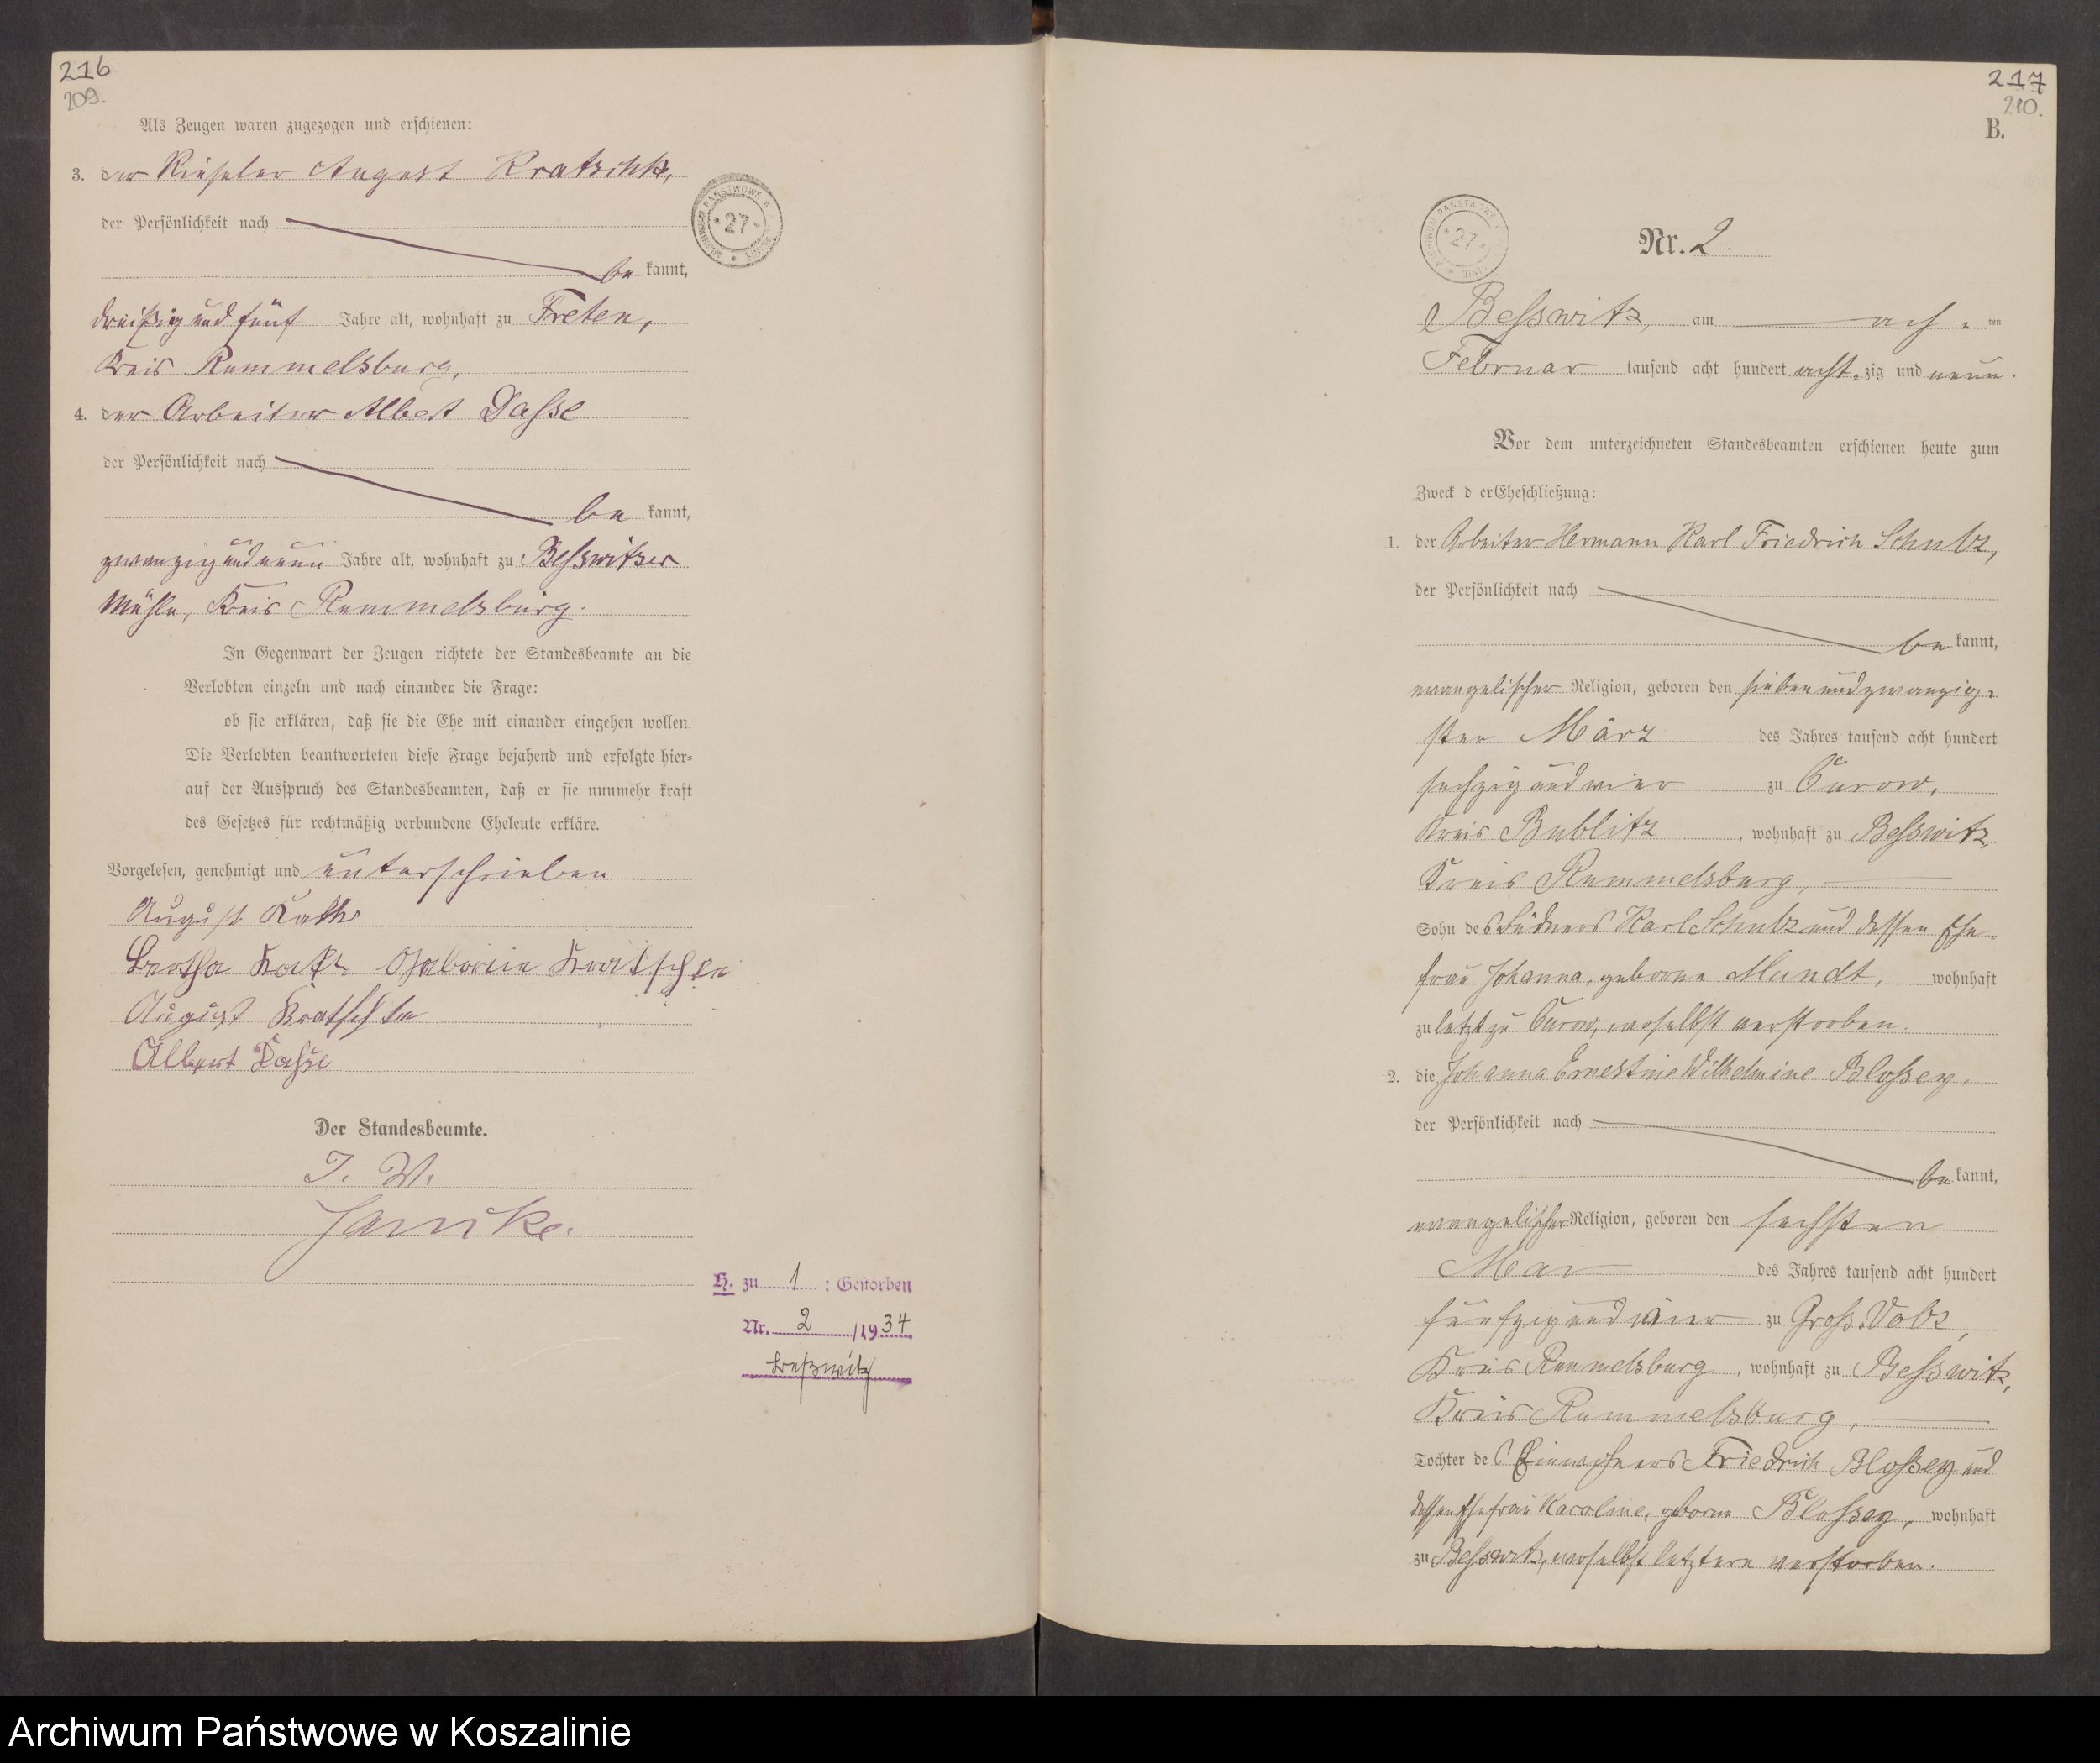 216
209.
Als Zeugen waren zugezogen und erschienen:
3. der Rieseler August Kratschk,
der Persönlichkeit nach
be kannt,
dreißig und fünf Jahre alt, wohnhaft zu Treten,
Kreis Rummelsburg,
4. der Arbeiter Albert Dasse
der Persönlichkeit nach
be kannt,
zwanzig und neun Jahre alt, wohnhaft zu Besswitzer
Mühle, Kreis Rummelsburg.
In Gegenwart der Zeugen richtete der Standesbeamte an die
Verlobten einzeln und nach einander die Frage:
ob sie erklären, daß sie die Ehe mit einander eingehen wollen.
Die Verlobten beantworteten diese Frage bejahend und erfolgte hier-
auf der Ausspruch des Standesbeamten, daß er sie nunmehr kraft
des Gesetzes für rechtmäßig verbundene Eheleute erkläre.
Vorgelesen, genehmigt und unterschrieben
August
Bertha
August Kratschke
Albert Dasse
Der Standesbeamte.
J. V.
H. zu 1 : Gestorben
Nr. 2 /1934
Beßwitz
27
217
210.
B.
27
Nr. 2.
Besswitz, am ach - ten
Februar tausend acht hundert acht-zig und neun.
Vor dem unterzeichneten Standesbeamten erschienen heute zum
Zweck d er Eheschließung:
1. der Arbeiter Hermann Karl Friedrich Schulz,
der Persönlichkeit nach
be kannt,
evangelischer Religion, geboren den sieben und zwanzig-
sten März des Jahres tausend acht hundert
sechzig und vier zu Curow,
Kreis Bublitz, wohnhaft zu Besswitz,
Kreis Rummelsburg,
Sohn des Büdners Karl Schulz und dessen Ehe-
frau Johanna, geborne Mundt, wohnhaft
zuletzt zu Curow, woselbst verstorben.
2. die Johanna Ernestine Wilhelmine Blossey,
der Persönlichkeit nach
be kannt,
evangelischer Religion, geboren den sechsten
Mai des Jahres tausend acht hundert
fünfzig und vier zu Gross Volz,
Kreis Rummelsburg, wohnhaft zu Besswitz,
Kreis Rummelsburg,
Tochter des Einwohners Friedrich Blossey und
dessen Ehefrau Karoline, geborne Blossey, wohnhaft
zu Besswitz, woselbst letztere verstorben.
Archiwum Państwowe w Koszalinie